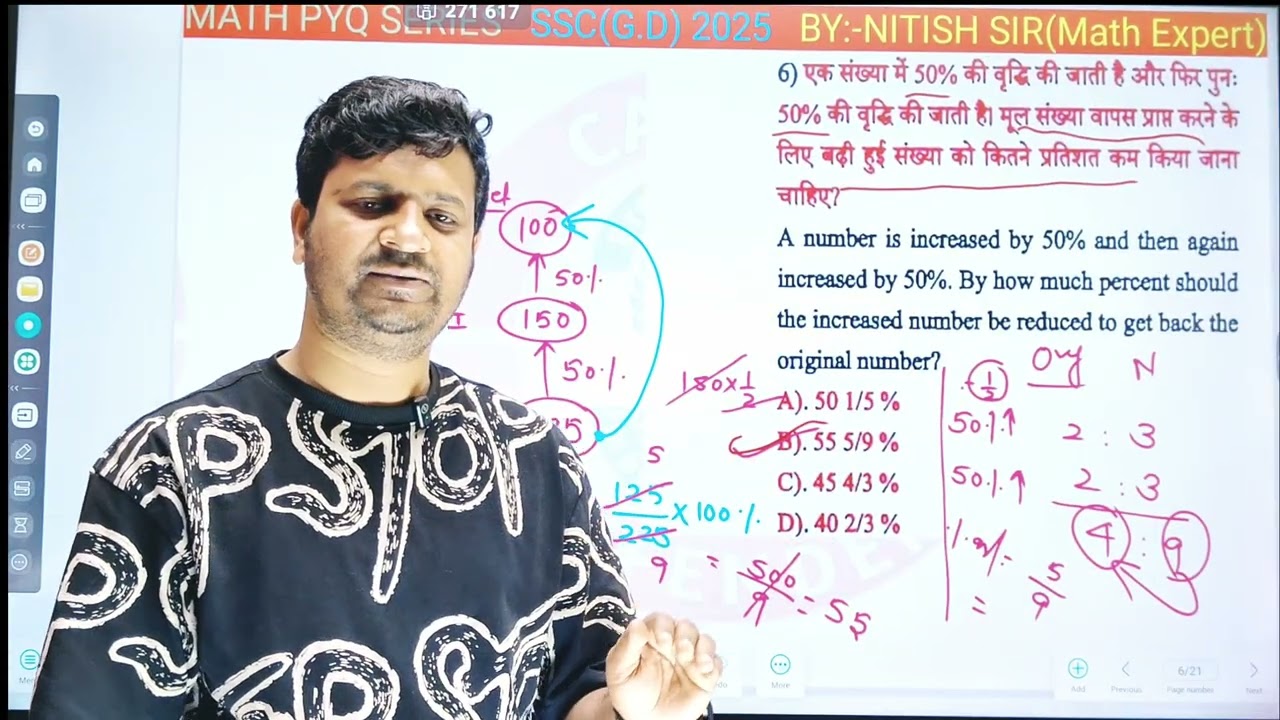 MATH PYQ SERIES SSC(G.D) 2025 BY:-NITISH SIR(Math Expert)
271 617
6) एक संख्या में 50% की वृद्धि की जाती है और फिर पुनः
50% की वृद्धि की जाती है। मूल संख्या वापस प्राप्त करने के
लिए बढ़ी हुई संख्या को कितने प्रतिशत कम किया जाना
चाहिए?
A number is increased by 50% and then again
increased by 50%. By how much percent should
the increased number be reduced to get back the
original number?
A). 50 1/5 %
B). 55 5/9 %
C). 45 4/3 %
D). 40 2/3 %
100
50%
I 150
50%
150×1/2
5
125/225 × 100%
9
= 500/9 = 55
1/2 Org N
50%↑ 2 : 3
50%↑ 2 : 3
4 : 9
= 5/9
PSYOP
Add
Previous
6/21
Page number
Next
More